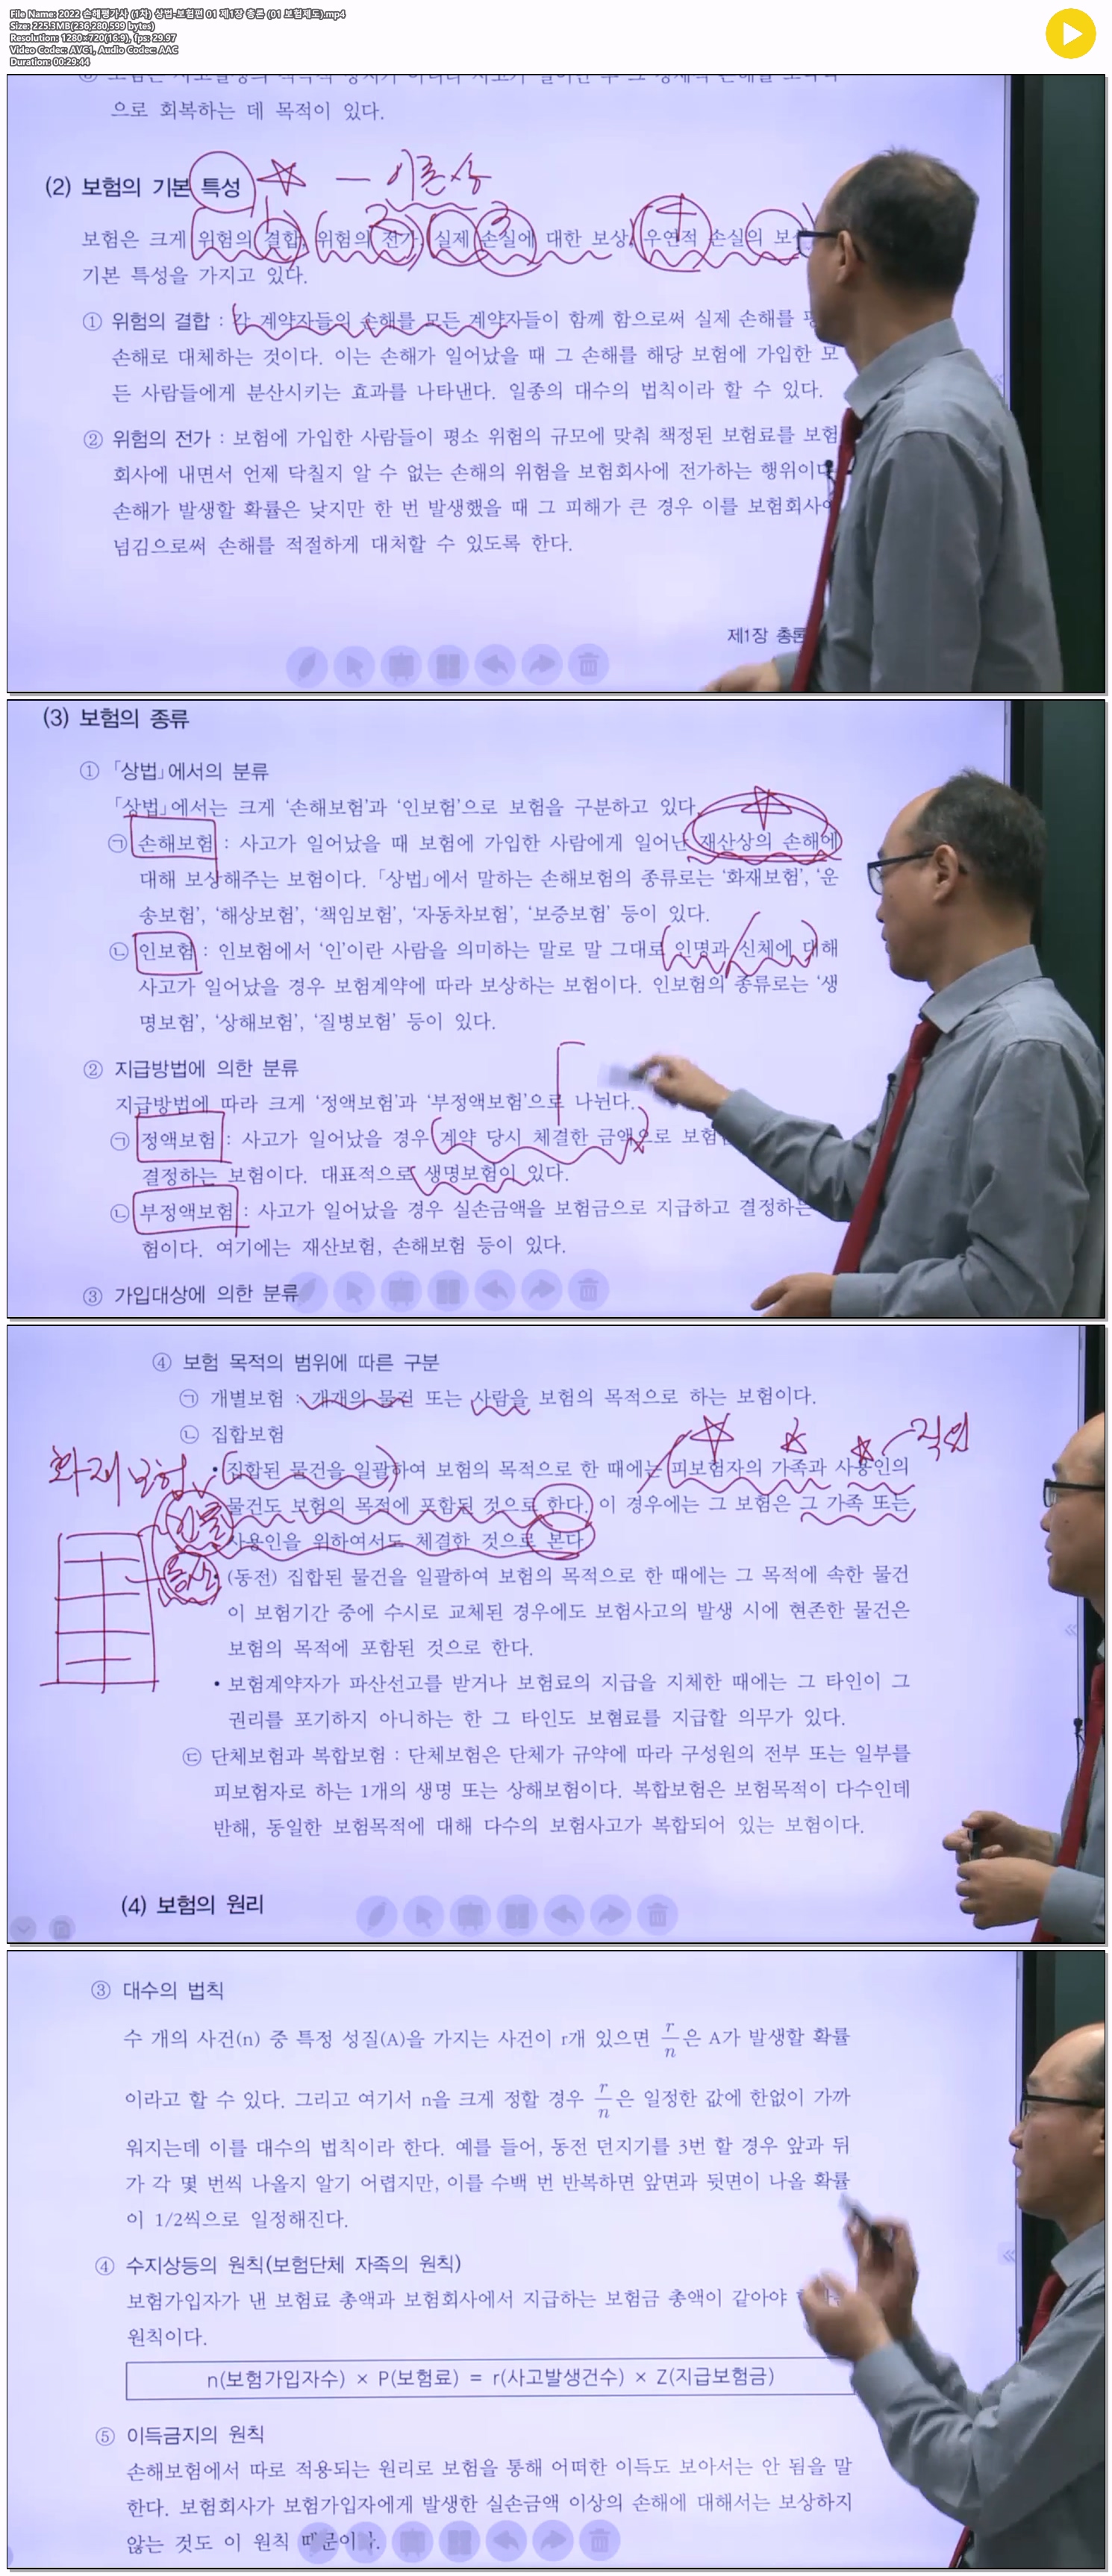 File Name: 2022 손해평가사 (1차) 상법-보험편 01 제1장 총론 (01 보험제도).mp4
Size: 225.3MB(236,280,599 bytes)
Resolution: 1280×720(16:9), fps: 29.97
Video Codec: AVC1, Audio Codec: AAC
Duration: 00:29:44
으로 회복하는 데 목적이 있다.
(2) 보험의 기본 특성 — 이론상
1 2 3 4
보험은 크게 위험의 결합, 위험의 전가, 실제 손실에 대한 보상, 우연적 손실의
기본 특성을 가지고 있다.
① 위험의 결합 : 각 계약자들의 손해를 모든 계약자들이 함께 함으로써 실제 손해를
손해로 대체하는 것이다. 이는 손해가 일어났을 때 그 손해를 해당 보험에 가입한 모
든 사람들에게 분산시키는 효과를 나타낸다. 일종의 대수의 법칙이라 할 수 있다.
② 위험의 전가 : 보험에 가입한 사람들이 평소 위험의 규모에 맞춰 책정된 보험료를 보험
회사에 내면서 언제 닥칠지 알 수 없는 손해의 위험을 보험회사에 전가하는 행위이다
손해가 발생할 확률은 낮지만 한 번 발생했을 때 그 피해가 큰 경우 이를 보험회사에
넘김으로써 손해를 적절하게 대처할 수 있도록 한다.
제1장 총론
(3) 보험의 종류
① 「상법」에서의 분류
「상법」에서는 크게 ‘손해보험’과 ‘인보험’으로 보험을 구분하고 있다.
㉠ 손해보험 : 사고가 일어났을 때 보험에 가입한 사람에게 일어난 재산상의 손해에
대해 보상해주는 보험이다. 「상법」에서 말하는 손해보험의 종류로는 ‘화재보험’, ‘운
송보험’, ‘해상보험’, ‘책임보험’, ‘자동차보험’, ‘보증보험’ 등이 있다.
㉡ 인보험 : 인보험에서 ‘인’이란 사람을 의미하는 말로 말 그대로 인명과 신체에 대해
사고가 일어났을 경우 보험계약에 따라 보상하는 보험이다. 인보험의 종류로는 ‘생
명보험’, ‘상해보험’, ‘질병보험’ 등이 있다.
② 지급방법에 의한 분류
지급방법에 따라 크게 ‘정액보험’과 ‘부정액보험’으로 나뉜다.
㉠ 정액보험 : 사고가 일어났을 경우 계약 당시 체결한 금액으로
결정하는 보험이다. 대표적으로 생명보험이 있다.
㉡ 부정액보험 : 사고가 일어났을 경우 실손금액을 보험금으로 지급하고 결정하는
험이다. 여기에는 재산보험, 손해보험 등이 있다.
③ 가입대상에 의한 분류
④ 보험 목적의 범위에 따른 구분
㉠ 개별보험 : 개개의 물건 또는 사람을 보험의 목적으로 하는 보험이다.
㉡ 집합보험
직원
화재보험
• 집합된 물건을 일괄하여 보험의 목적으로 한 때에는 피보험자의 가족과 사용인의
물건도 보험의 목적에 포함된 것으로 한다. 이 경우에는 그 보험은 그 가족 또는
사용인을 위하여서도 체결한 것으로 본다.
(동전) 집합된 물건을 일괄하여 보험의 목적으로 한 때에는 그 목적에 속한 물건
이 보험기간 중에 수시로 교체된 경우에도 보험사고의 발생 시에 현존한 물건은
보험의 목적에 포함된 것으로 한다.
• 보험계약자가 파산선고를 받거나 보험료의 지급을 지체한 때에는 그 타인이 그
권리를 포기하지 아니하는 한 그 타인도 보혐료를 지급할 의무가 있다.
㉢ 단체보험과 복합보험 : 단체보험은 단체가 규약에 따라 구성원의 전부 또는 일부를
피보험자로 하는 1개의 생명 또는 상해보험이다. 복합보험은 보험목적이 다수인데
반해, 동일한 보험목적에 대해 다수의 보험사고가 복합되어 있는 보험이다.
(4) 보험의 원리
③ 대수의 법칙
수 개의 사건(n) 중 특정 성질(A)을 가지는 사건이 r개 있으면 r/n은 A가 발생할 확률
이라고 할 수 있다. 그리고 여기서 n을 크게 정할 경우 r/n은 일정한 값에 한없이 가까
워지는데 이를 대수의 법칙이라 한다. 예를 들어, 동전 던지기를 3번 할 경우 앞과 뒤
가 각 몇 번씩 나올지 알기 어렵지만, 이를 수백 번 반복하면 앞면과 뒷면이 나올 확률
이 1/2씩으로 일정해진다.
④ 수지상등의 원칙(보험단체 자족의 원칙)
보험가입자가 낸 보험료 총액과 보험회사에서 지급하는 보험금 총액이 같아야
원칙이다.
n(보험가입자수) × P(보험료) = r(사고발생건수) × Z(지급보험금)
⑤ 이득금지의 원칙
손해보험에서 따로 적용되는 원리로 보험을 통해 어떠한 이득도 보아서는 안 됨을 말
한다. 보험회사가 보험가입자에게 발생한 실손금액 이상의 손해에 대해서는 보상하지
않는 것도 이 원칙 때문이다.